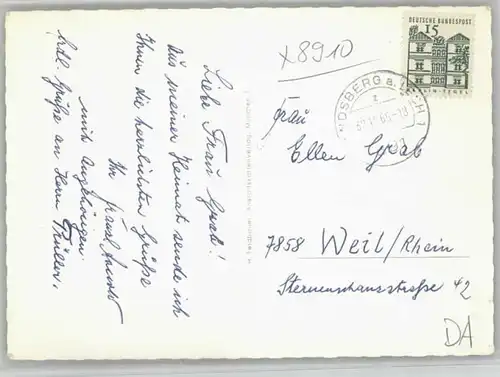 Liebe Frau Grab!
Aus meiner Heimat sende ich
Ihnen die herzlichsten Grüße
Ihr
mit Angehörigen.
hzl. Grüße an Herrn
x 8910
DEUTSCHE BUNDESPOST
15
BERLIN-TEGEL
LANDSBERG a. LECH 1
z
Frau
Ellen Grab
7858 Weil/Rhein
Sternenschanzstraße 42
DA